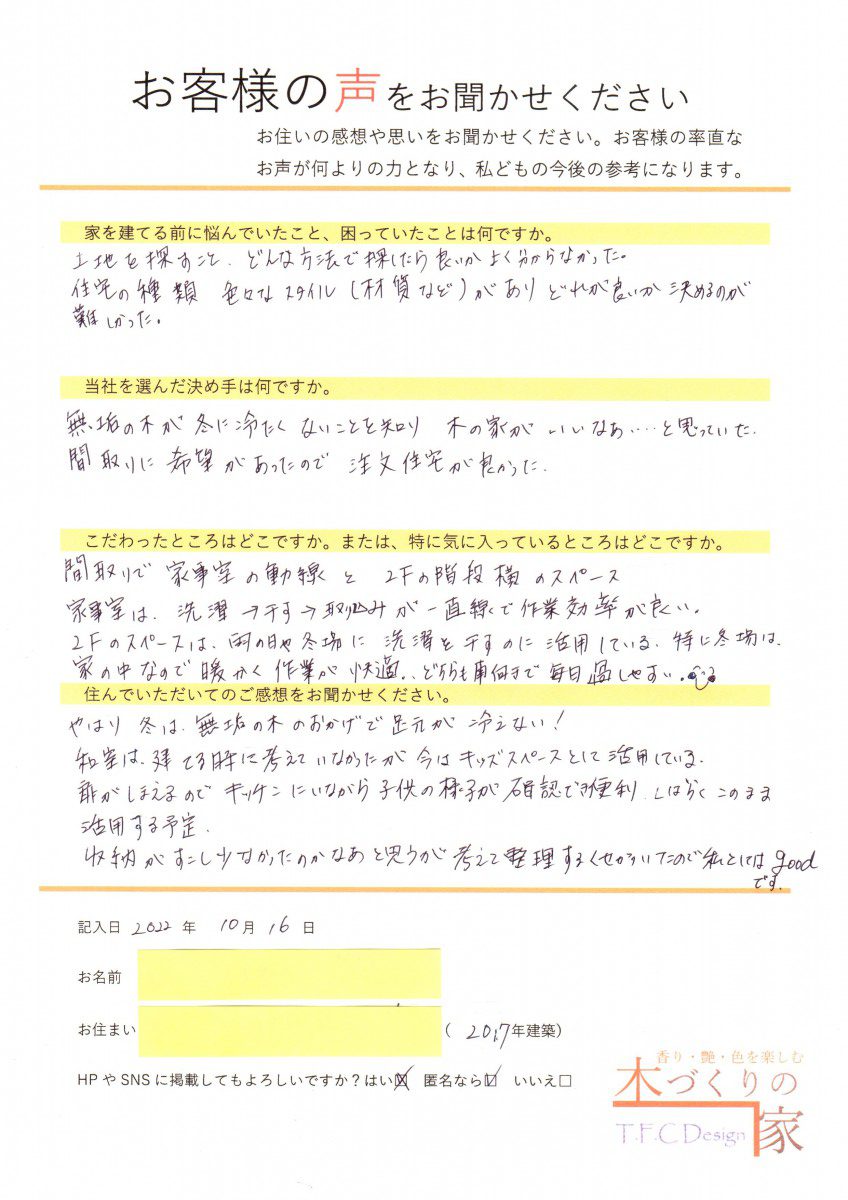 お客様の声をお聞かせください
お住いの感想や思いをお聞かせください。お客様の率直な
お声が何よりの力となり、私どもの今後の参考になります。
家を建てる前に悩んでいたこと、困っていたことは何ですか。
土地を探すこと、どんな方法で探したら良いかよく分からなかった。
住宅の種類 色々なスタイル(材質など)がありどれが良いか決めるのが
難しかった。
当社を選んだ決め手は何ですか。
無垢の木が冬に冷たくないことを知り 木の家がいいなあ……と思っていた。
間取りに希望があったので 注文住宅が良かった。
こだわったところはどこですか。または、特に気に入っているところはどこですか。
間取りで 家事室の動線と 2Fの階段横のスペース
家事室は、洗濯→干す→取込みが一直線で作業効率が良い。
2Fのスペースは、雨の日や冬場に 洗濯を干すのに活用している。特に冬場は、
家の中なので暖かく作業が快適。どちらも南向きで毎日過しやすい。
住んでいただいてのご感想をお聞かせください。
やはり 冬は、無垢の木のおかげで足元が冷えない!
和室は、建てる時に考えていなかったが今はキッズスペースとして活用している。
キッチンにいながら子供の様子が確認でき便利。しばらくこのまま
活用する予定。
収納がすこし少なかったのかなあと思うが 考えて整理するくせがついたので私としてはgood
です。
記入日 2022 年 10 月 16 日
お名前
お住まい (2017年建築)
HPやSNSに掲載してもよろしいですか?はい☒ 匿名なら☑ いいえ□
香り・艶・色を楽しむ
木づくりの
家
T.F.C Design